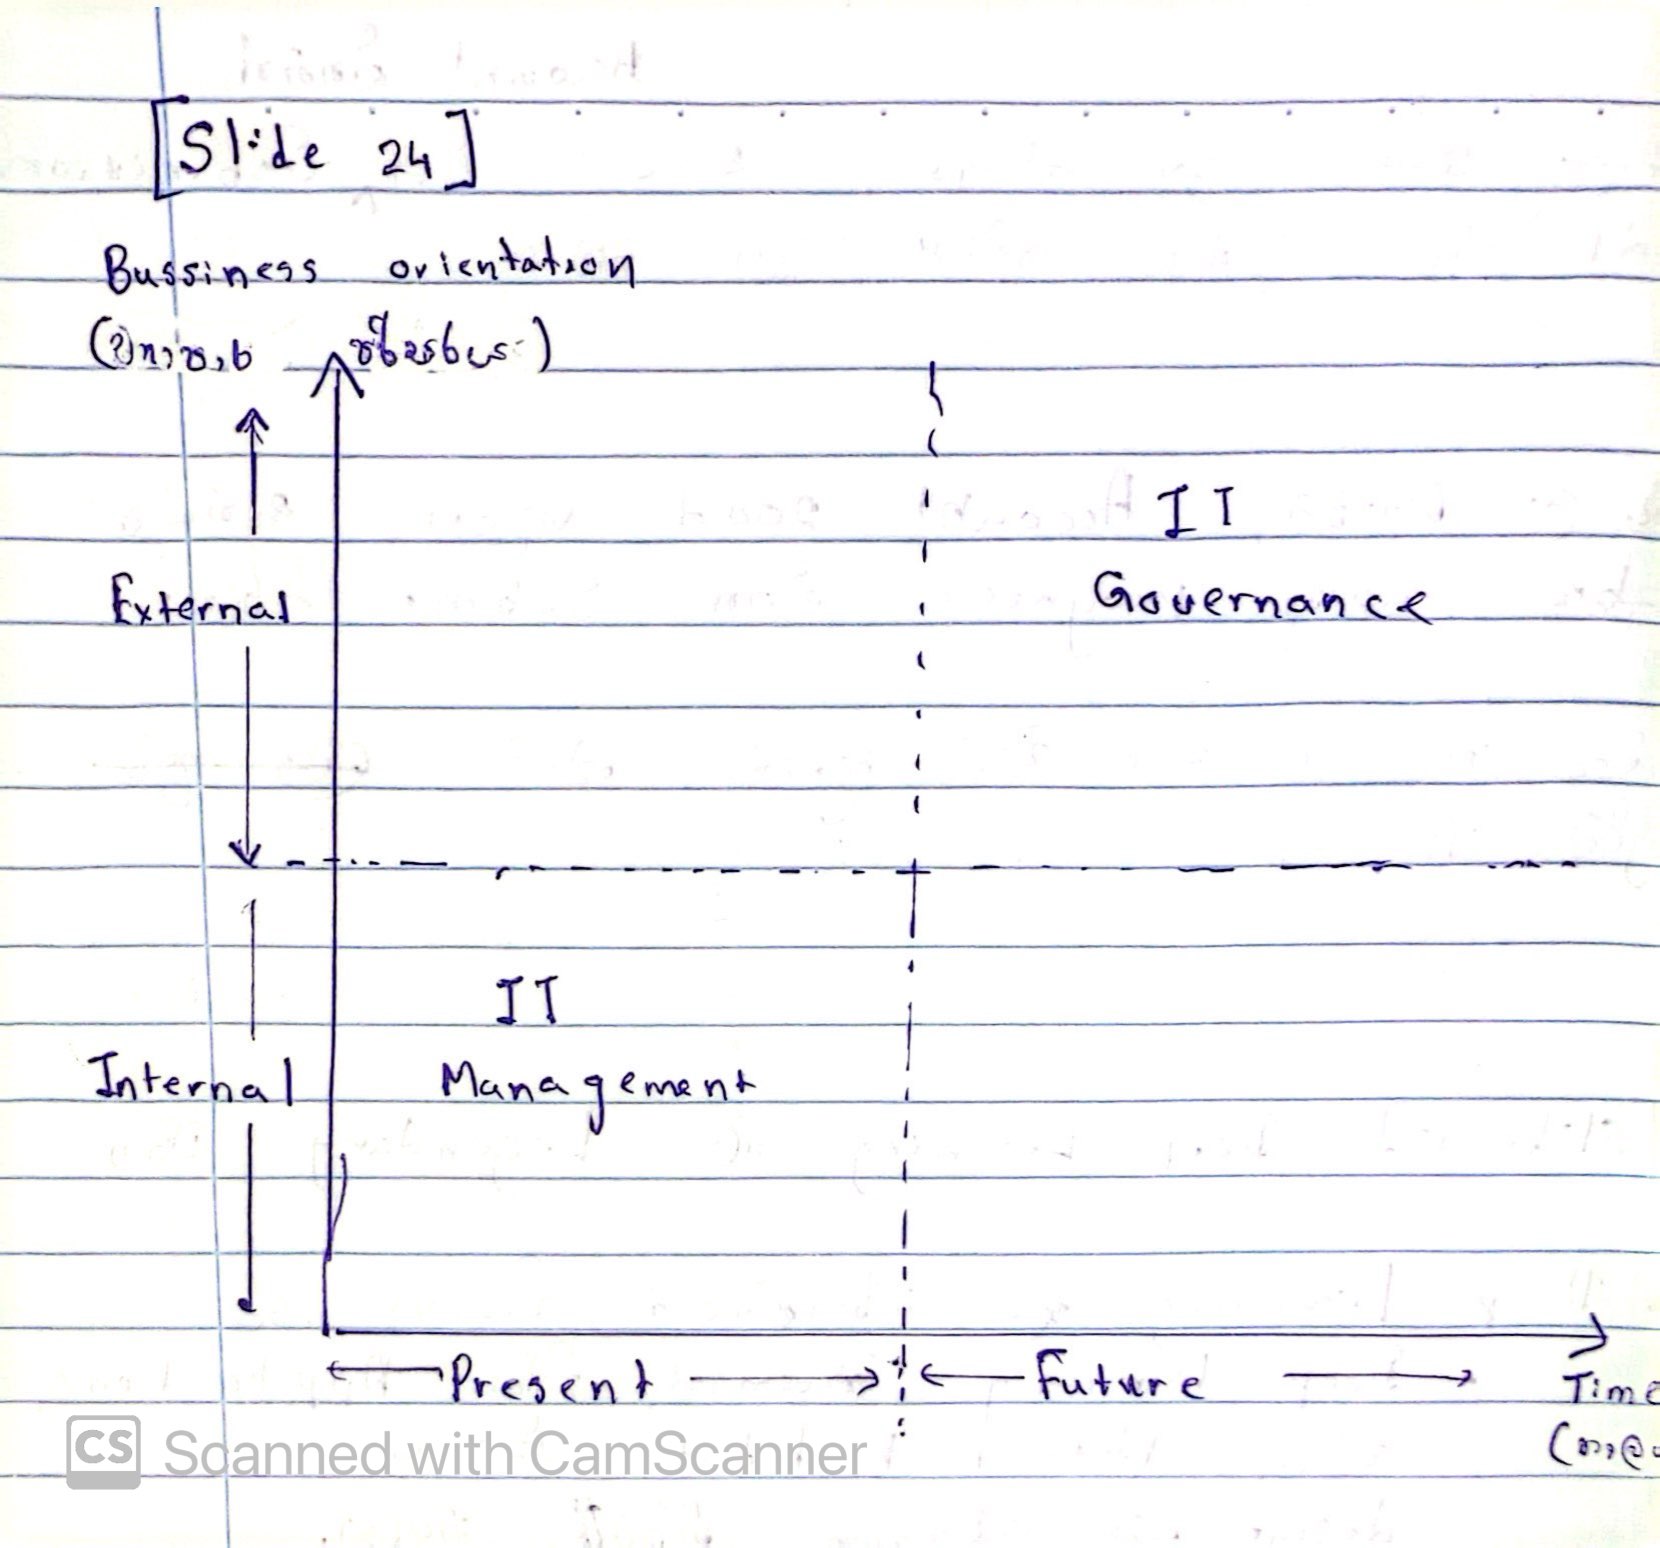 [Slide 24]
Bussiness orientation
External
IT
Governance
IT
Internal Management
Present Future
Time
CS Scanned with CamScanner